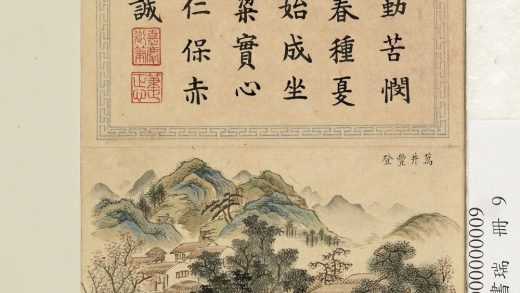 勤苦憫
春種夏
始成坐
粱實心
仁保赤
誠
萬井豐登
瑞 冊 9